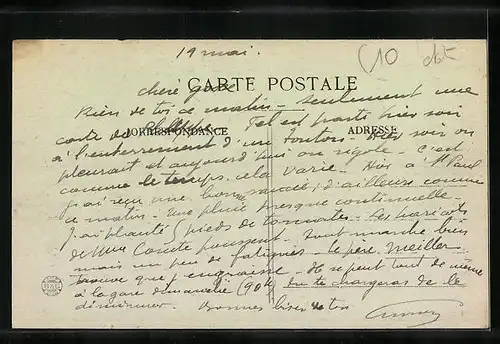 19 mai.
(10
CARTE POSTALE
Rien de toi ce matin - seulement une
carte de
CORRESPONDANCE
ADRESSE
Tel est parti hier soir
à l'enterrement d'un tonton - Hier soir on
pleurait et aujourd'hui on rigole - C'est
comme le temps, cela varie - Hier à St Paul
j'ai reçu une bonne saucée, d'ailleurs comme
ce matin - Une pluie presque continuelle -
J'ai planté pieds de tomates - Les haricots
de Mme Comte poussent - Tout marche bien
mais un peu de fatigues - Le père Meiller
trouve que j'engraisse - Il se peut tout de même
à la gare dimanche (90k) tu te chargeras de le
diminuer - Bonnes bises de ton